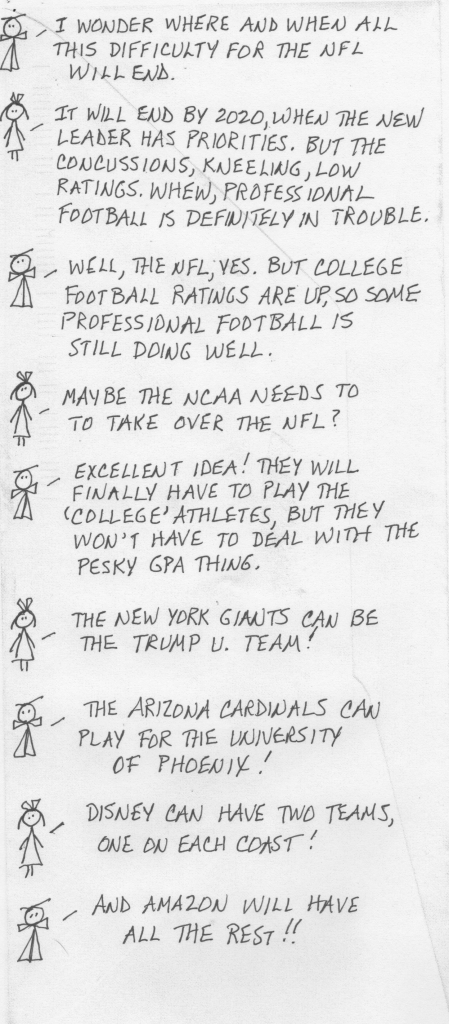 I WONDER WHERE AND WHEN ALL
THIS DIFFICULTY FOR THE NFL
WILL END.
IT WILL END BY 2020, WHEN THE NEW
LEADER HAS PRIORITIES. BUT THE
CONCUSSIONS, KNEELING, LOW
RATINGS. WHEW, PROFESSIONAL
FOOTBALL IS DEFINITELY IN TROUBLE.
WELL, THE NFL, YES. BUT COLLEGE
FOOTBALL RATINGS ARE UP, SO SOME
PROFESSIONAL FOOTBALL IS
STILL DOING WELL.
MAYBE THE NCAA NEEDS TO
TO TAKE OVER THE NFL?
EXCELLENT IDEA! THEY WILL
FINALLY HAVE TO PLAY THE
'COLLEGE' ATHLETES, BUT THEY
WON'T HAVE TO DEAL WITH THE
PESKY GPA THING.
THE NEW YORK GIANTS CAN BE
THE TRUMP U. TEAM!
THE ARIZONA CARDINALS CAN
PLAY FOR THE UNIVERSITY
OF PHOENIX!
DISNEY CAN HAVE TWO TEAMS,
ONE ON EACH COAST!
AND AMAZON WILL HAVE
ALL THE REST!!